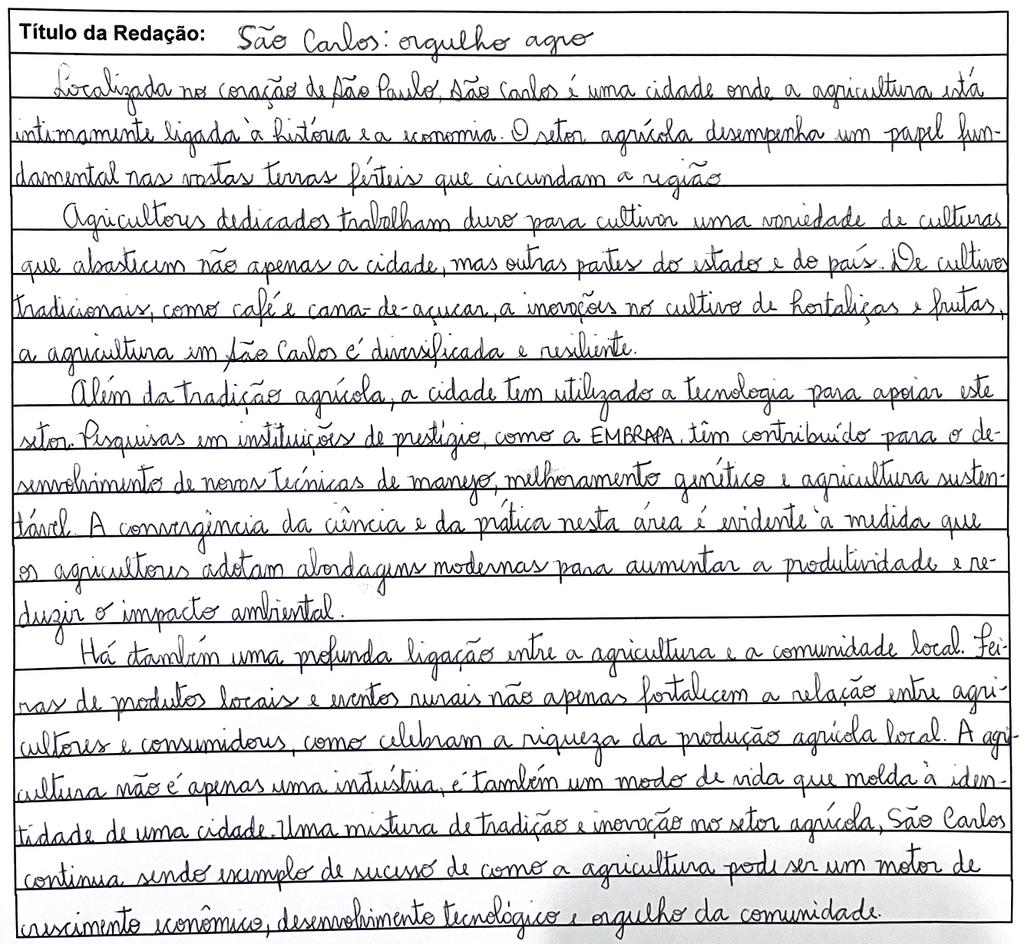 Título da Redação: São Carlos: orgulho agro
Localizada no coração de São Paulo, São Carlos é uma cidade onde a agricultura está
intimamente ligada à história e a economia. O setor agrícola desempenha um papel fun-
damental nas vastas terras férteis que circundam a região
Agricultores dedicados trabalham duro para cultivar uma variedade de culturas
que abastecem não apenas a cidade, mas outras partes do estado e do país. De cultivos
tradicionais, como café e cana-de-açucar, a inovações no cultivo de hortaliças e frutas,
a agricultura em São Carlos é diversificada e resiliente.
Além da tradição agrícola, a cidade tem utilizado a tecnologia para apoiar este
setor. Pesquisas em instituições de prestígio, como a EMBRAPA, têm contribuído para o de-
senvolvimento de novas técnicas de manejo, melhoramento genético e agricultura susten-
tável. A convergência da ciência e da prática nesta área é evidente à medida que
os agricultores adotam abordagens modernas para aumentar a produtividade e re-
duzir o impacto ambiental.
Há também uma profunda ligação entre a agricultura e a comunidade local. Fei-
ras de produtos locais e eventos rurais não apenas fortalecem a relação entre agri-
cultores e consumidores, como celebram a riqueza da produção agrícola local. A agri-
cultura não é apenas uma indústria, é também um modo de vida que molda à iden-
tidade de uma cidade. Uma mistura de tradição e inovação no setor agrícola, São Carlos
continua sendo exemplo de sucesso de como a agricultura pode ser um motor de
crescimento econômico, desenvolvimento tecnológico e orgulho da comunidade.